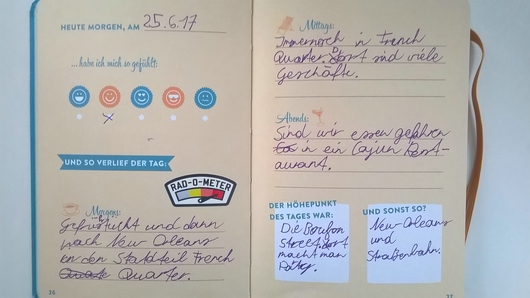 HEUTE MORGEN, AM 25.6.17
... habe ich mich so gefühlt:
UND SO VERLIEF DER TAG:
RAD-O-METER
Morgens:
Gefrüstückt und dann
nach New Orleans
in den Stadtteil French
Quarter.
26
Mittags:
Immernoch in French
Quarter. Dort sind viele
Geschäfte.
Abends:
Sind wir essen gefahren
in ein Cajun Rest-
aurant.
DER HÖHEPUNKT
DES TAGES WAR:
Die Bourbon
Street. dort
macht man
UND SONST SO?
New-Orleans
und
Straßenbahn.
27